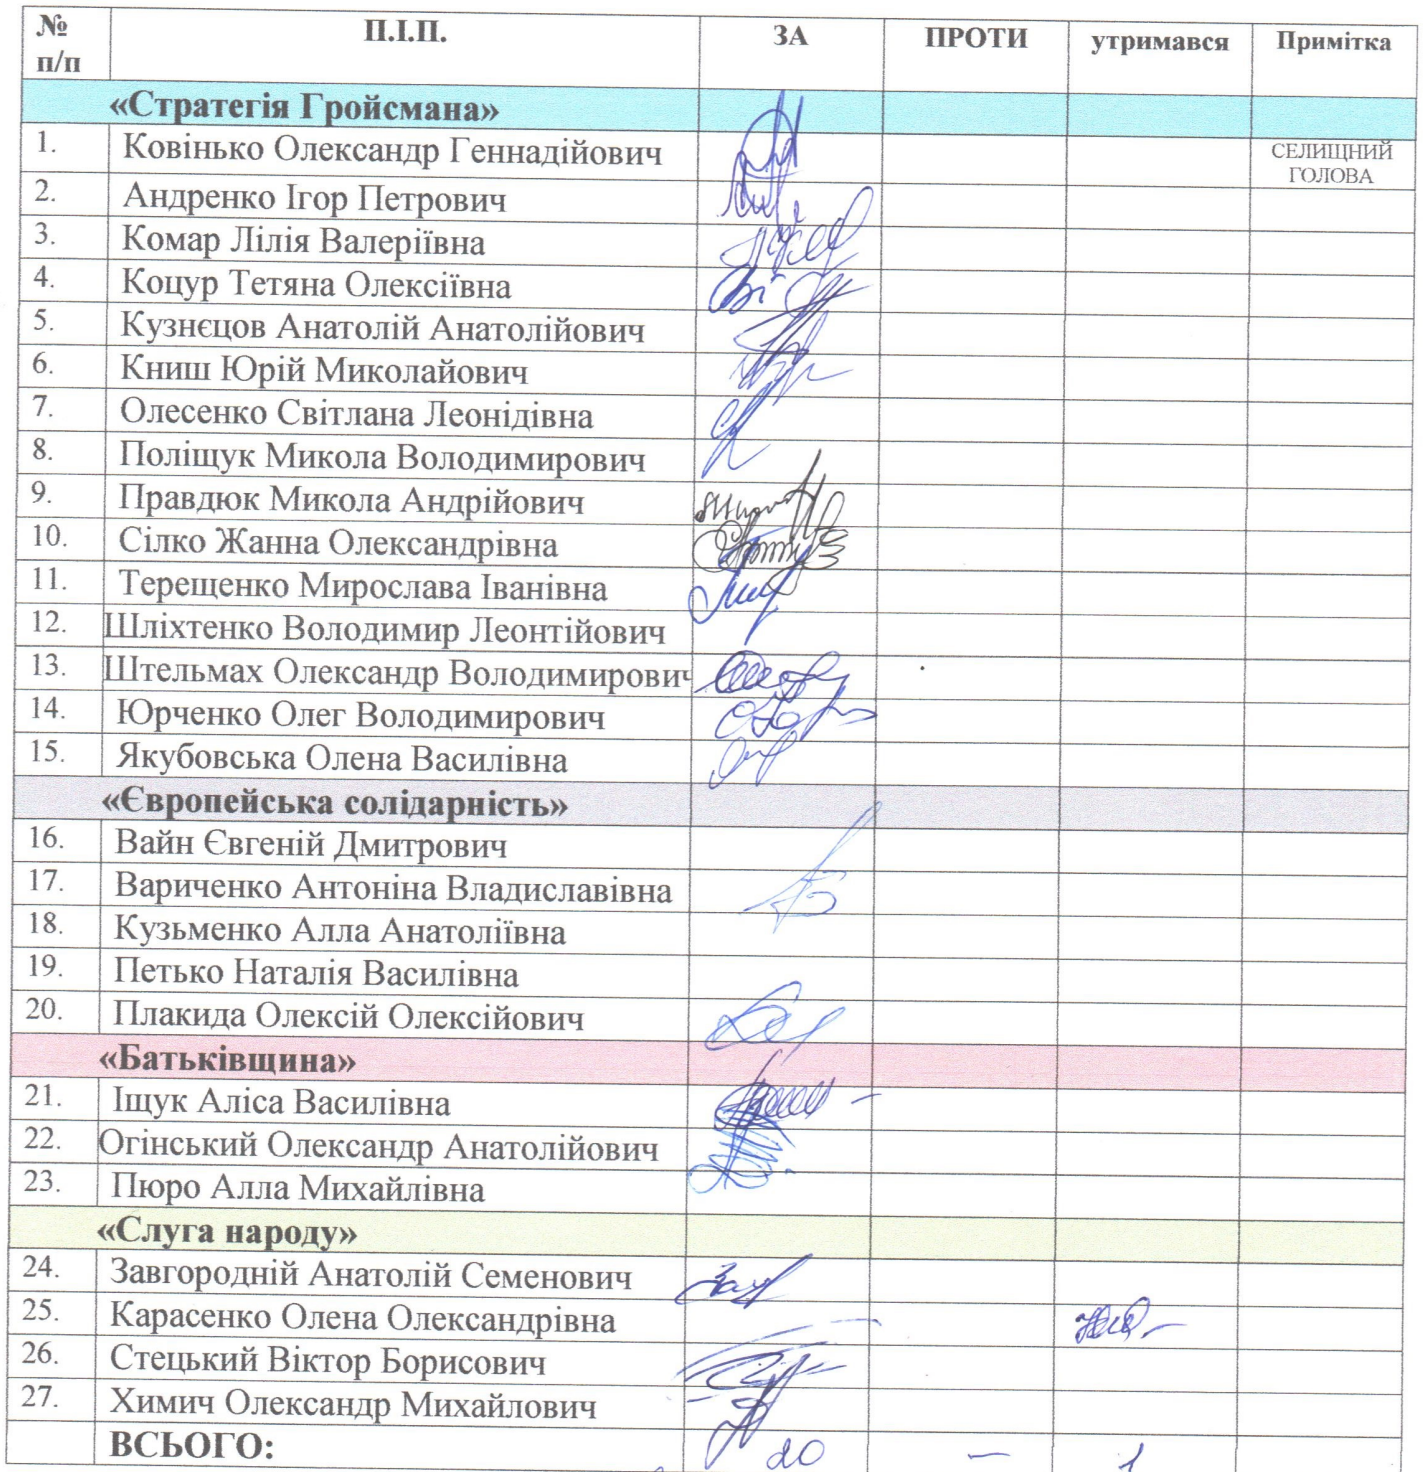 № п/п П.І.П. ЗА ПРОТИ утримався Примітка
«Стратегія Гройсмана»
1. Ковінько Олександр Геннадійович СЕЛИЩНИЙ ГОЛОВА
2. Андренко Ігор Петрович
3. Комар Лілія Валеріївна
4. Коцур Тетяна Олексіївна
5. Кузнєцов Анатолій Анатолійович
6. Книш Юрій Миколайович
7. Олесенко Світлана Леонідівна
8. Поліщук Микола Володимирович
9. Правдюк Микола Андрійович
10. Сілко Жанна Олександрівна
11. Терещенко Мирослава Іванівна
12. Шліхтенко Володимир Леонтійович
13. Штельмах Олександр Володимирович
14. Юрченко Олег Володимирович
15. Якубовська Олена Василівна
«Європейська солідарність»
16. Вайн Євгеній Дмитрович
17. Вариченко Антоніна Владиславівна
18. Кузьменко Алла Анатоліївна
19. Петько Наталія Василівна
20. Плакида Олексій Олексійович
«Батьківщина»
21. Іщук Аліса Василівна
22. Огінський Олександр Анатолійович
23. Пюро Алла Михайлівна
«Слуга народу»
24. Завгородній Анатолій Семенович
25. Карасенко Олена Олександрівна
26. Стецький Віктор Борисович
27. Химич Олександр Михайлович
ВСЬОГО: 20 — 1